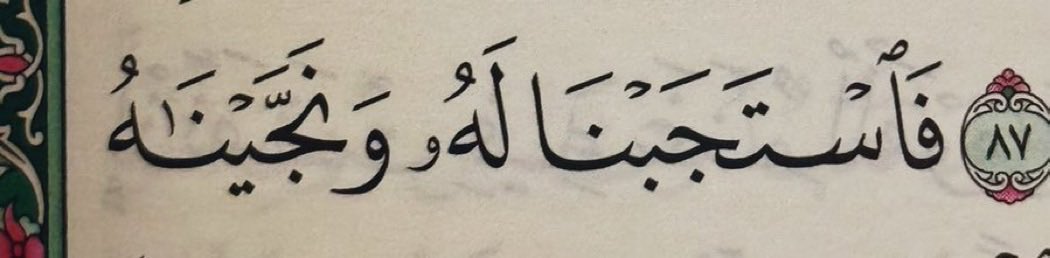 ٨٧ فَٱسْتَجَبْنَا لَهُۥ وَنَجَّيْنَـٰهُ